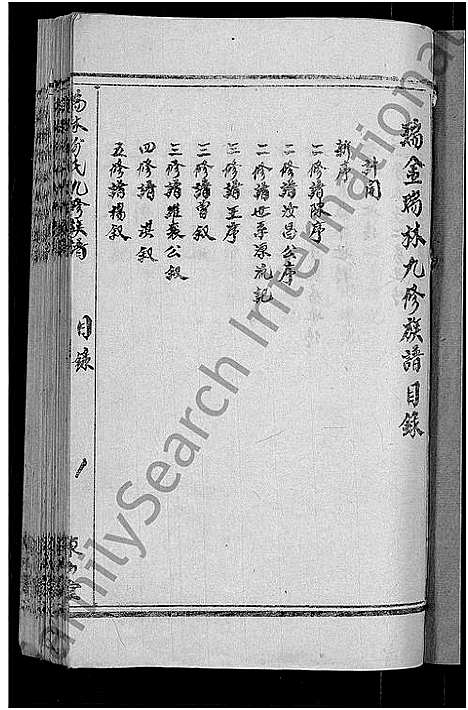 瑞金瑞林九修族譜目錄
計開
新序
二修譜陳序
二修譜汝昌公序
二修譜世系源流記
三修譜王序
三修譜曾叙
三修譜維表公叙
四修譜湛叙
五修譜楊叙
氏九修族譜
目錄
FamilySearch International